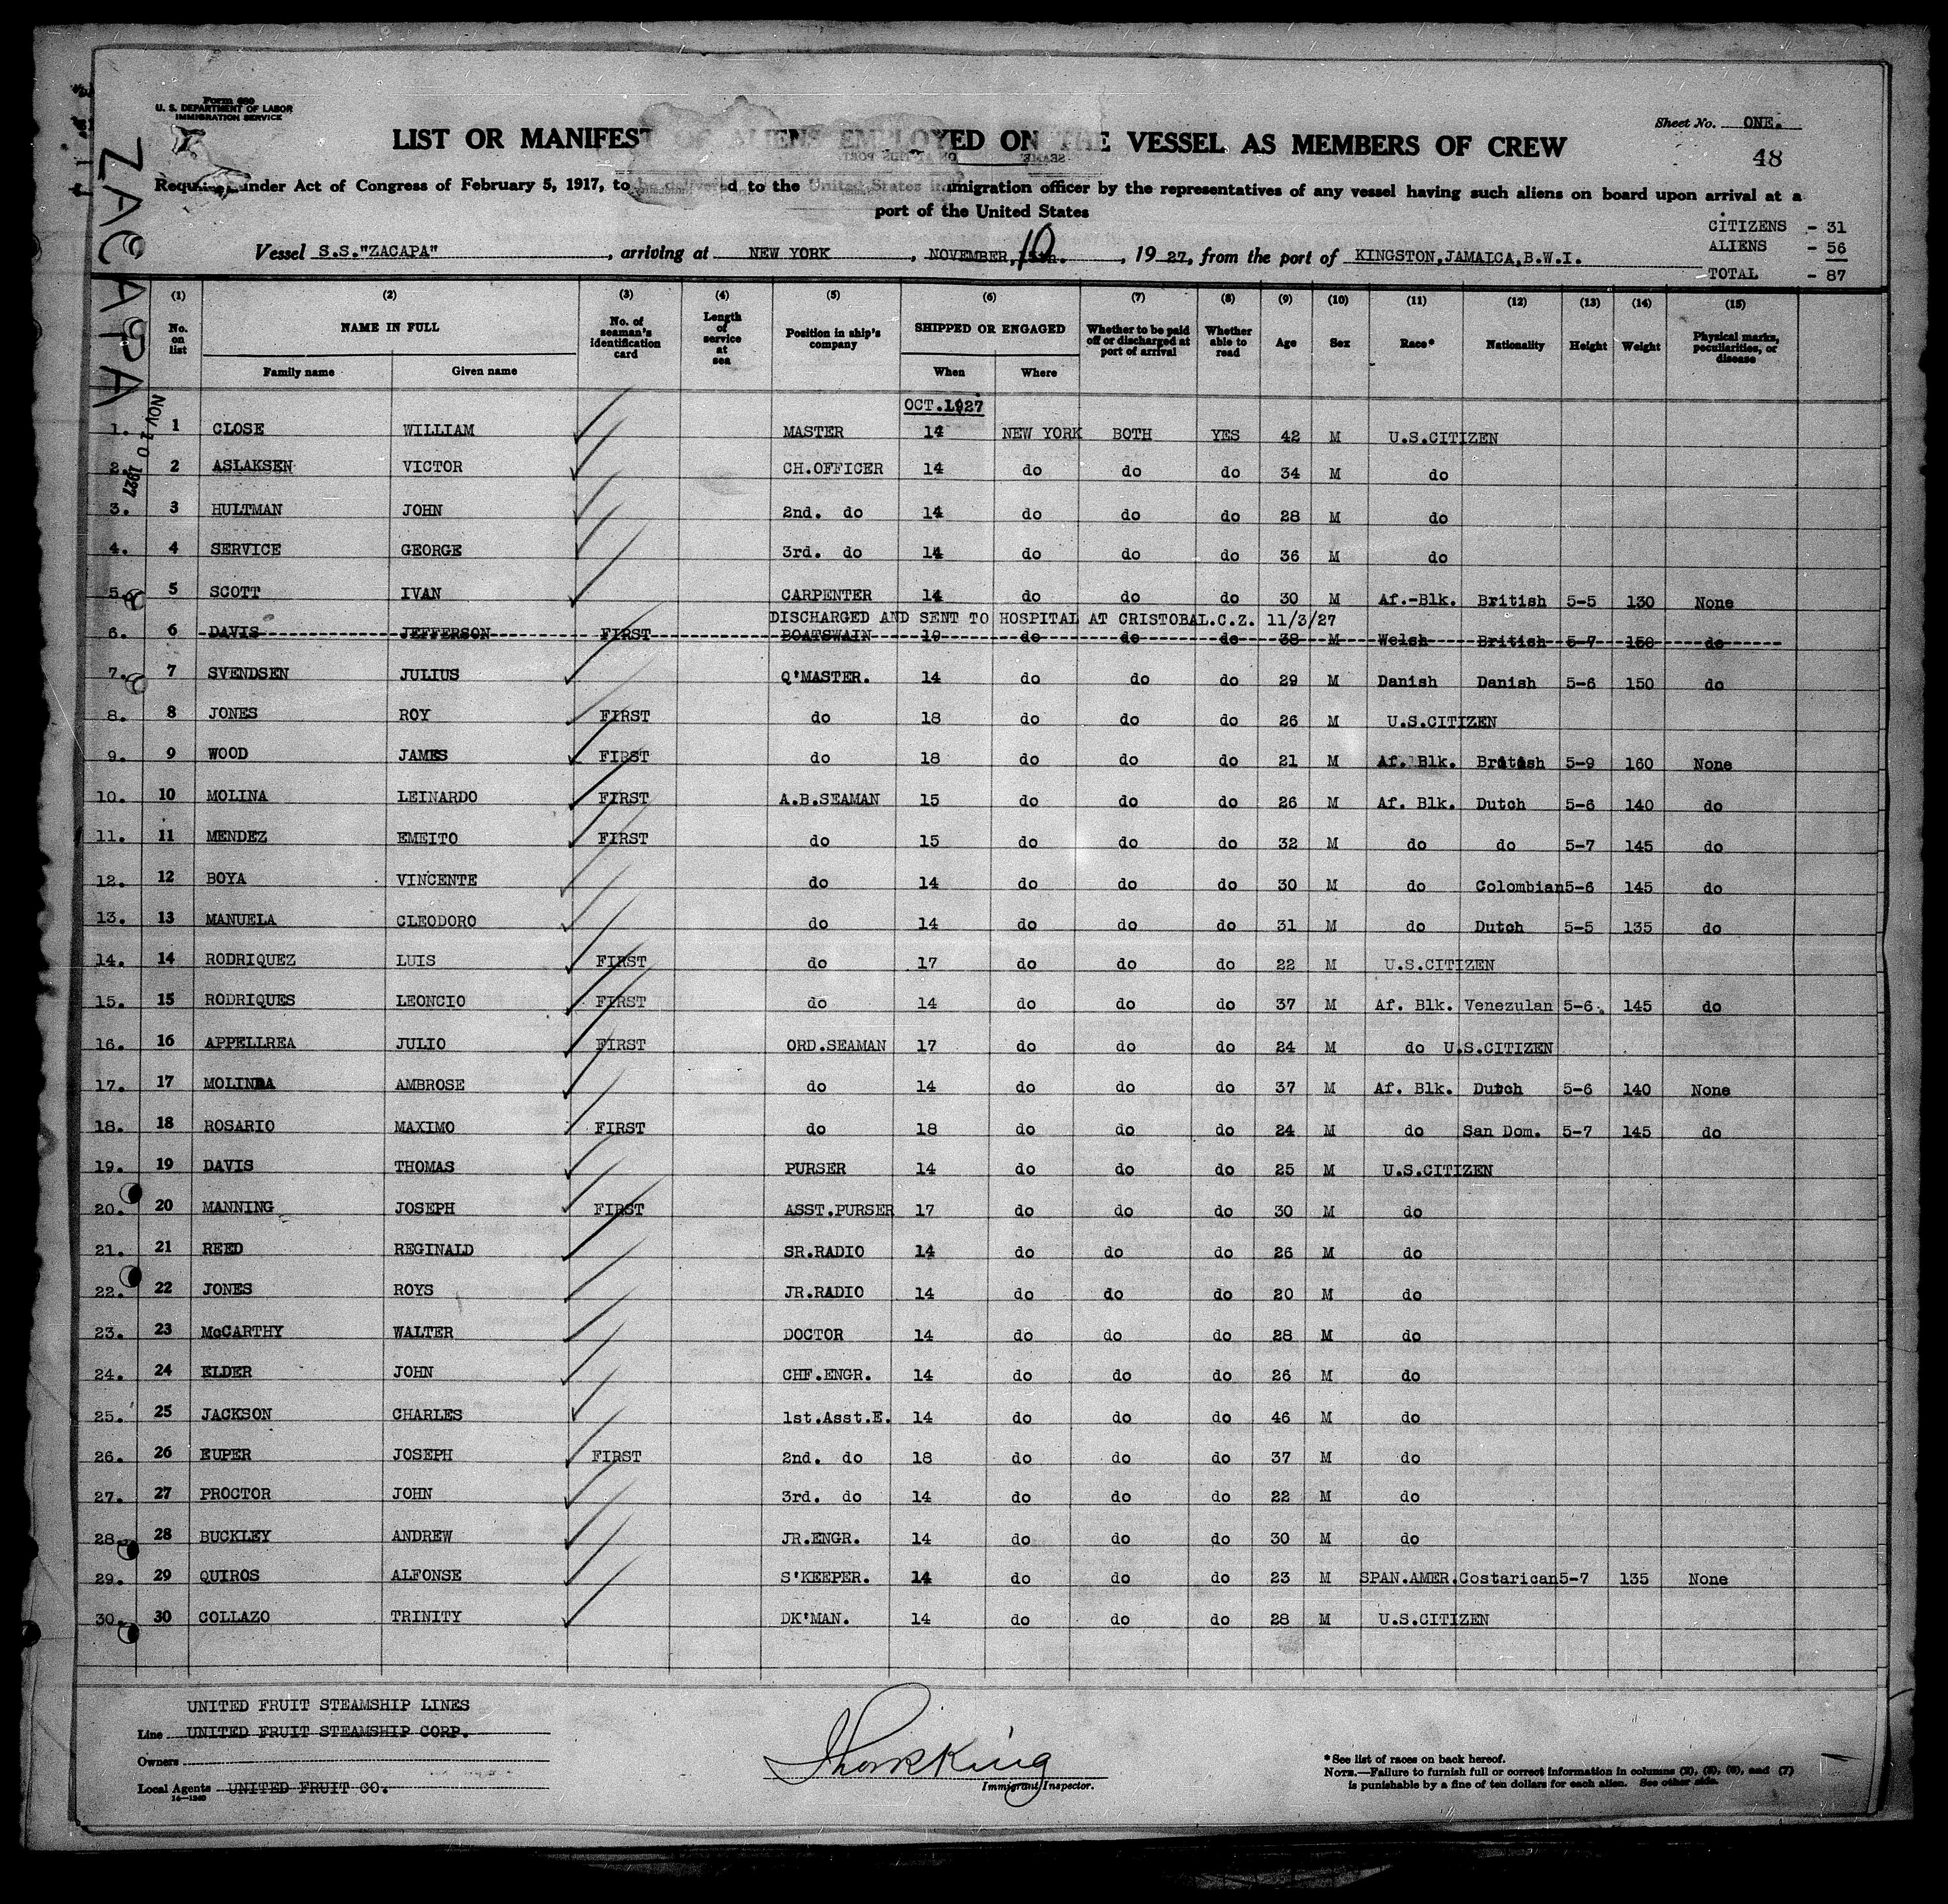 Form 680
U. S. DEPARTMENT OF LABOR
IMMIGRATION SERVICE
Sheet No. ONE.
48
LIST OR MANIFEST OF ALIENS EMPLOYED ON THE VESSEL AS MEMBERS OF CREW
Required under Act of Congress of February 5, 1917, to be delivered to the United States immigration officer by the representatives of any vessel having such aliens on board upon arrival at a
port of the United States
CITIZENS - 31
ALIENS - 56
TOTAL - 87
Vessel S.S."ZACAPA", arriving at NEW YORK, NOVEMBER, 10, 1927, from the port of KINGSTON,JAMAICA,B.W.I.
ZACAPA
NOV 10 1927
(1) (2) (3) (4) (5) (6) (7) (8) (9) (10) (11) (12) (13) (14) (15)
No. on list NAME IN FULL Family name Given name No. of seaman's identification card Length of service at sea Position in ship's company SHIPPED OR ENGAGED When Where Whether to be paid off or discharged at port of arrival Whether able to read Age Sex Race* Nationality Height Weight Physical marks, peculiarities, or disease
OCT.1927
1. 1 CLOSE WILLIAM MASTER 14 NEW YORK BOTH YES 42 M U.S.CITIZEN
2. 2 ASLAKSEN VICTOR CH.OFFICER 14 do do do 34 M do
3. 3 HULTMAN JOHN 2nd. do 14 do do do 28 M do
4. 4 SERVICE GEORGE 3rd. do 14 do do do 36 M do
5. 5 SCOTT IVAN CARPENTER 14 do do do 30 M Af.-Blk. British 5-5 130 None
DISCHARGED AND SENT TO HOSPITAL AT CRISTOBAL.C.Z. 11/3/27
6. 6 DAVIS JEFFERSON FIRST BOATSWAIN 19 do do do 38 M Welsh British 5-7 150 do
7. 7 SVENDSEN JULIUS Q'MASTER. 14 do do do 29 M Danish Danish 5-6 150 do
8. 8 JONES ROY FIRST do 18 do do do 26 M U.S.CITIZEN
9. 9 WOOD JAMES FIRST do 18 do do do 21 M Af. Blk. British 5-9 160 None
10. 10 MOLINA LEINARDO FIRST A.B.SEAMAN 15 do do do 26 M Af. Blk. Dutch 5-6 140 do
11. 11 MENDEZ EMEITO FIRST do 15 do do do 32 M do do 5-7 145 do
12. 12 BOYA VINCENTE do 14 do do do 30 M do Colombian 5-6 145 do
13. 13 MANUELA CLEODORO do 14 do do do 31 M do Dutch 5-5 135 do
14. 14 RODRIQUEZ LUIS FIRST do 17 do do do 22 M U.S.CITIZEN
15. 15 RODRIQUES LEONCIO FIRST do 14 do do do 37 M Af. Blk. Venezulan 5-6. 145 do
16. 16 APPELLREA JULIO FIRST ORD.SEAMAN 17 do do do 24 M do U.S.CITIZEN
17. 17 MOLINDA AMBROSE do 14 do do do 37 M Af. Blk. Dutch 5-6 140 None
18. 18 ROSARIO MAXIMO FIRST do 18 do do do 24 M do San Dom. 5-7 145 do
19. 19 DAVIS THOMAS PURSER 14 do do do 25 M U.S.CITIZEN
20. 20 MANNING JOSEPH FIRST ASST.PURSER 17 do do do 30 M do
21. 21 REED REGINALD SR.RADIO 14 do do do 26 M do
22. 22 JONES ROYS JR.RADIO 14 do do do 20 M do
23. 23 McCARTHY WALTER DOCTOR 14 do do do 28 M do
24. 24 ELDER JOHN CHF.ENGR. 14 do do do 26 M do
25. 25 JACKSON CHARLES 1st.Asst.E. 14 do do do 46 M do
26. 26 EUPER JOSEPH FIRST 2nd. do 18 do do do 37 M do
27. 27 PROCTOR JOHN 3rd. do 14 do do do 22 M do
28. 28 BUCKLEY ANDREW JR.ENGR. 14 do do do 30 M do
29. 29 QUIROS ALFONSE S'KEEPER. 14 do do do 23 M SPAN.AMER. Costarican 5-7 135 None
30. 30 COLLAZO TRINITY DK'MAN. 14 do do do 28 M U.S.CITIZEN
UNITED FRUIT STEAMSHIP LINES
Line UNITED FRUIT STEAMSHIP CORP.
Owners
Local Agents UNITED FRUIT CO.
14—1240
King
Immigrant Inspector.
*See list of races on back hereof.
NOTE.—Failure to furnish full or correct information in columns (2), (5), (6), and (7)
is punishable by a fine of ten dollars for each alien. See other side.